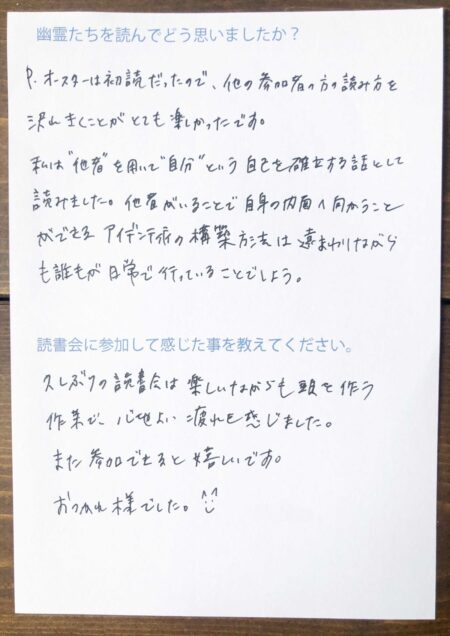 幽霊たちを読んでどう思いましたか？
P. オースターは初読だったので、他の参加者の方の読み方を
沢山きくことがとても楽しかったです。
私は"他者"を用いて"自分"という自己を確立する話として
読みました。他者がいることで自身の内面へ向かうこと
ができる アイデンティティの構築方法は 遠まわりながら
も誰もが日常で行っていることでしょう。
読書会に参加して感じた事を教えてください。
久しぶりの読書会は楽しいながらも頭を使う
作業で、心地よい疲れを感じました。
また参加できると嬉しいです。
おつかれ様でした。^^